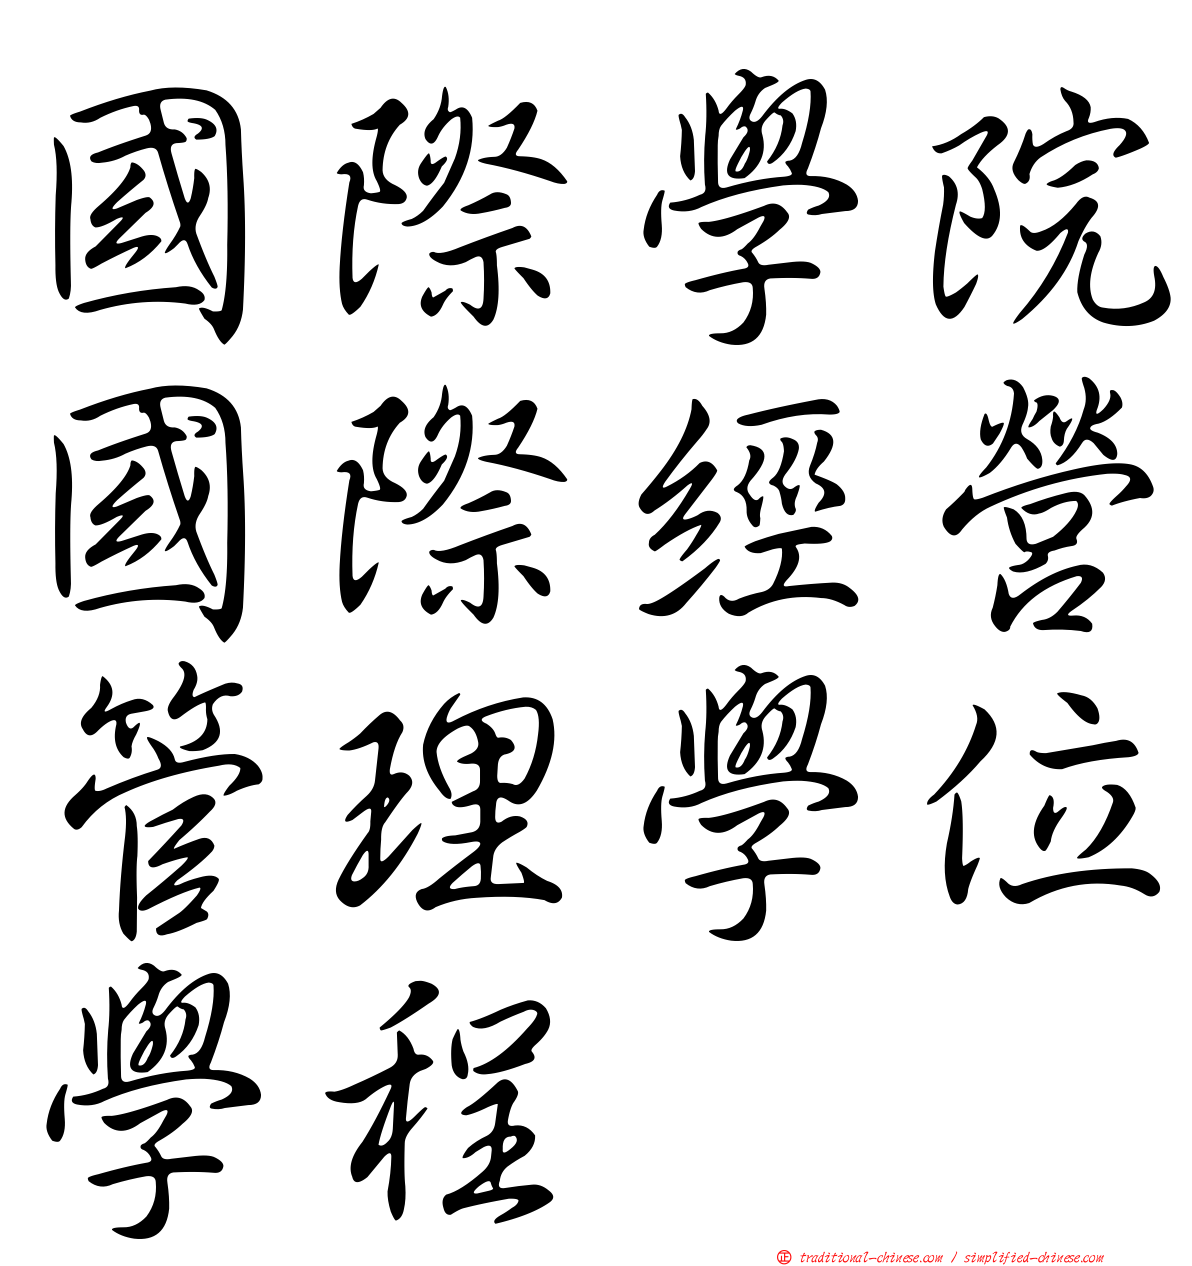 國際學院
國際經營
管理學位
學程
正 traditional-chinese.com / simplified-chinese.com